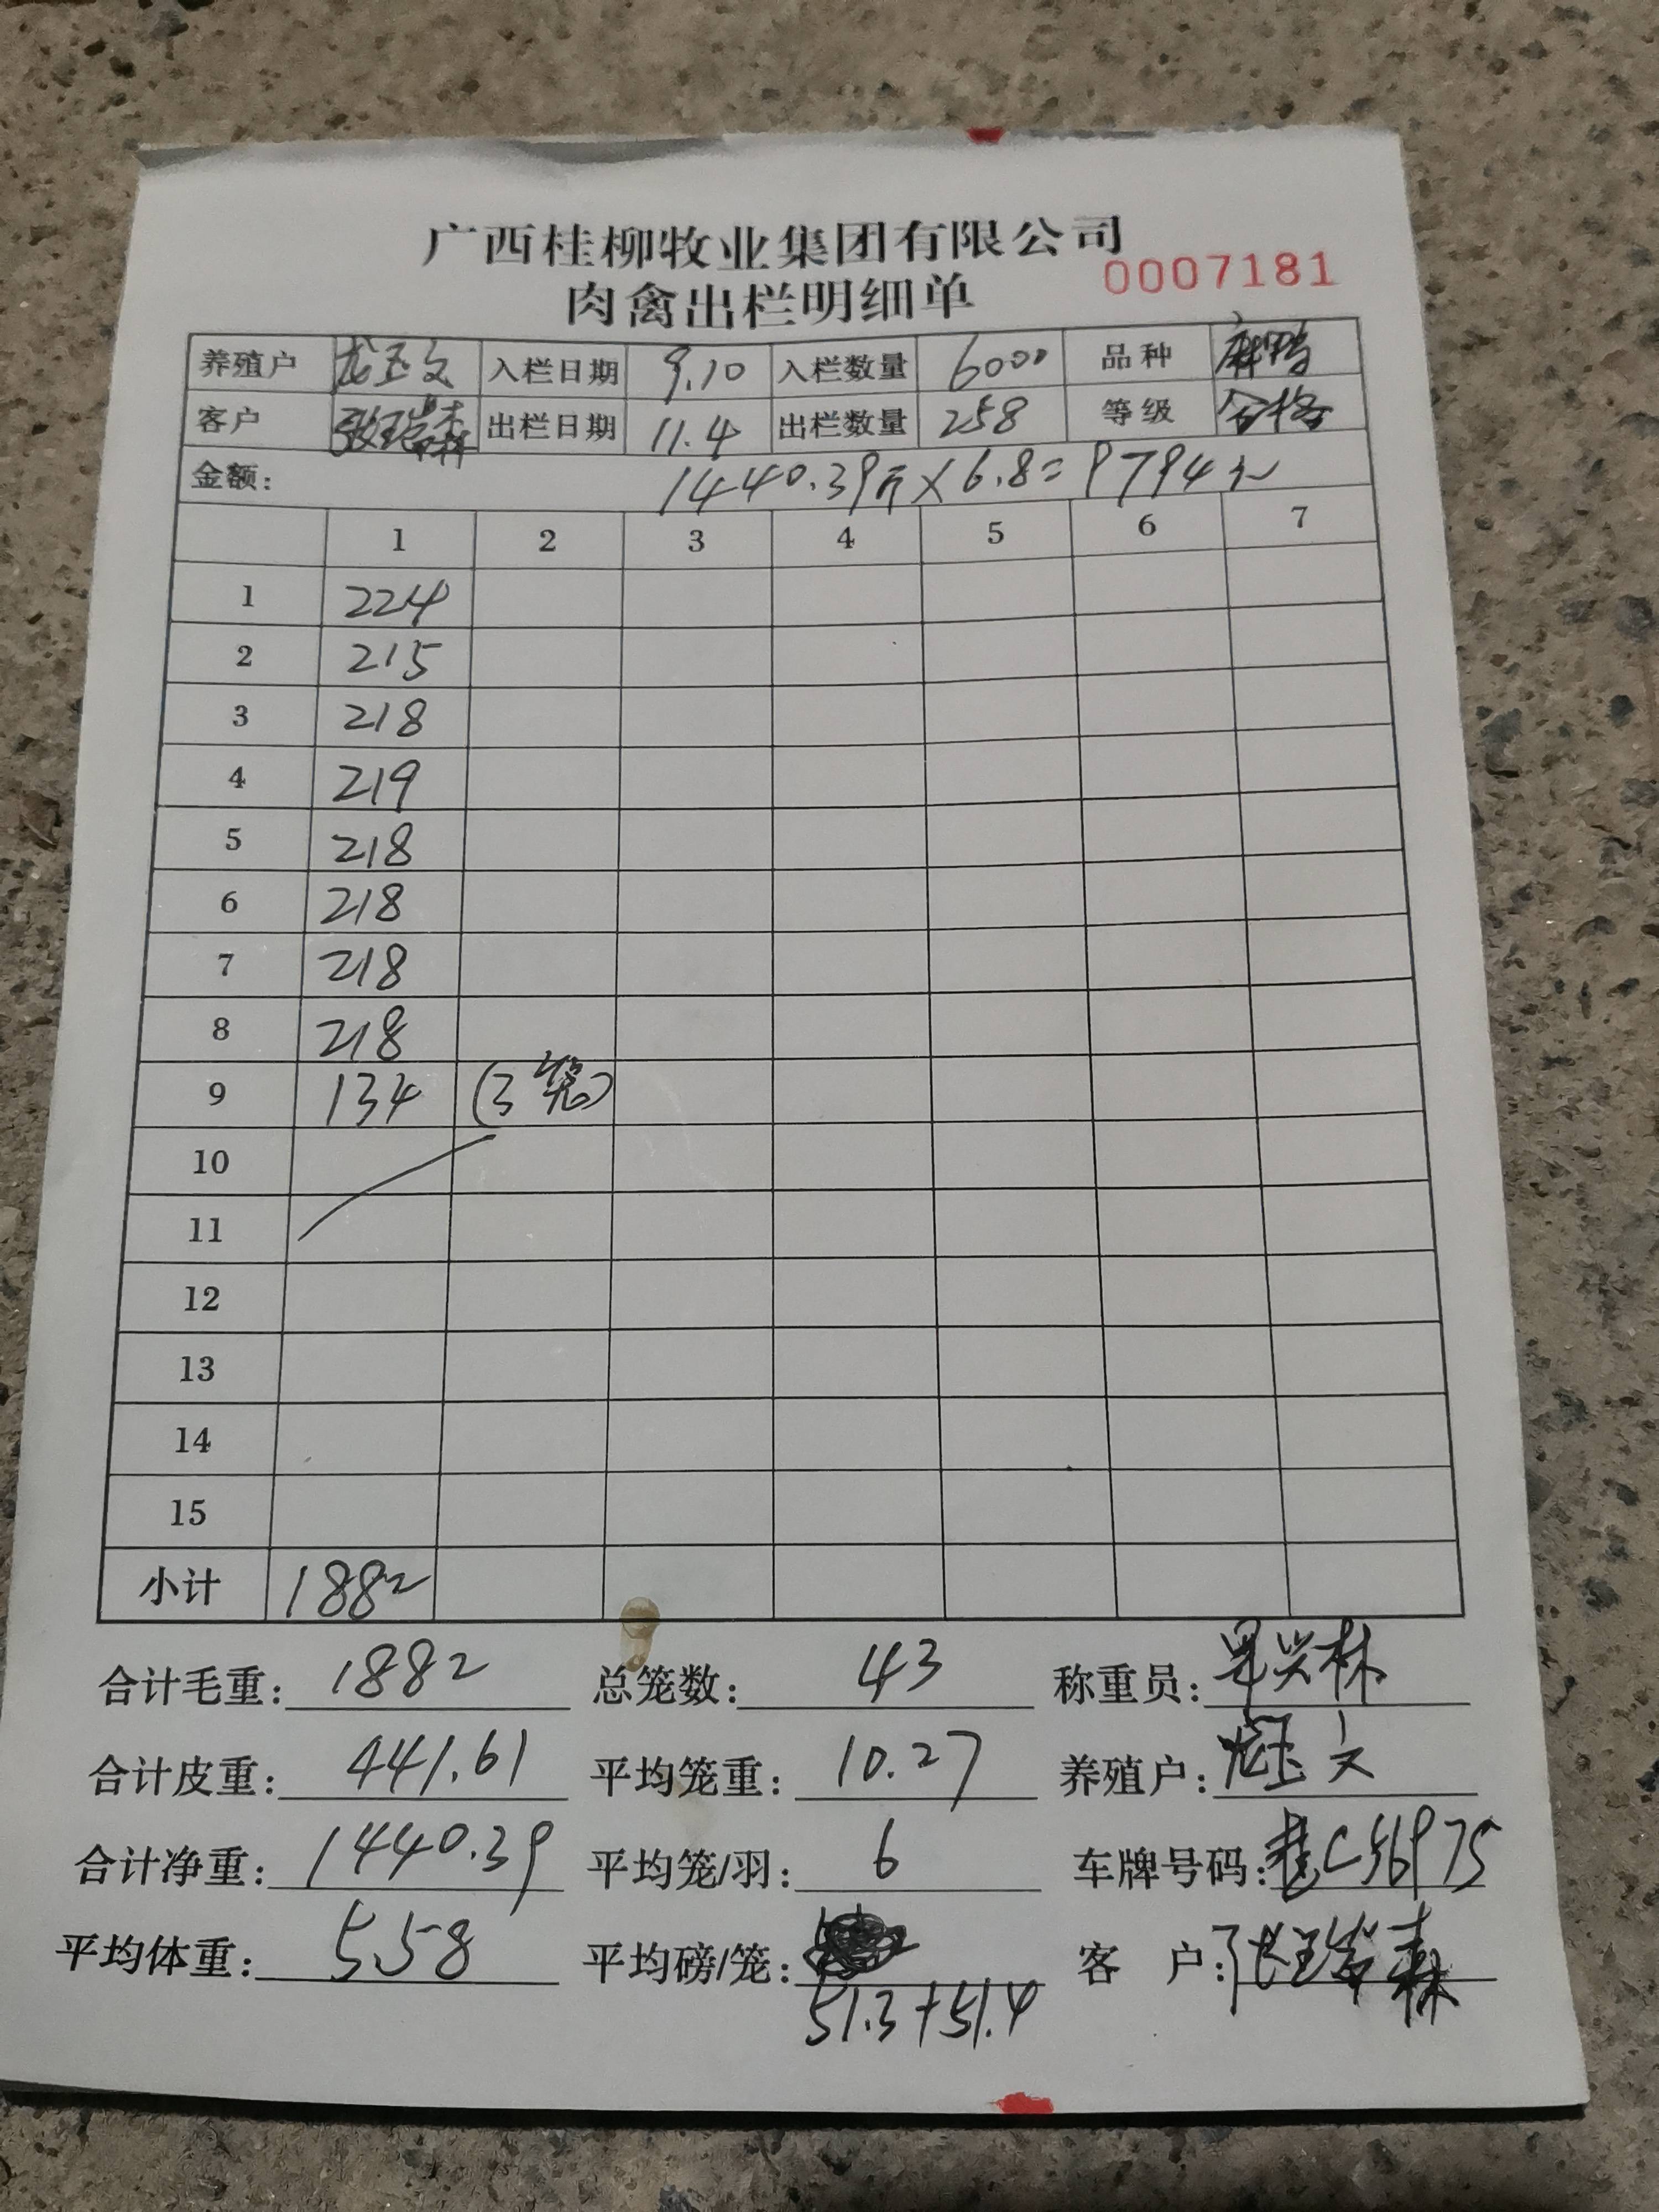 广西桂柳牧业集团有限公司
0007181
肉禽出栏明细单
养殖户 龙玉文 入栏日期 9.10 入栏数量 6000 品种 麻鸭
客户 张瑞森 出栏日期 11.4 出栏数量 258 等级 合格
金额: 1440.39斤×6.8=9794元
1 2 3 4 5 6 7
1 224
2 215
3 218
4 219
5 218
6 218
7 218
8 218
9 134 (3笼)
10
11
12
13
14
15
小计 1882
合计毛重: 1882 总笼数: 43 称重员: 兴林
合计皮重: 441.61 平均笼重: 10.27 养殖户: 龙玉文
合计净重: 1440.39 平均笼/羽: 6 车牌号码:
平均体重: 5.58 平均磅/笼: 客 户: 张瑞森
51.3+51.4